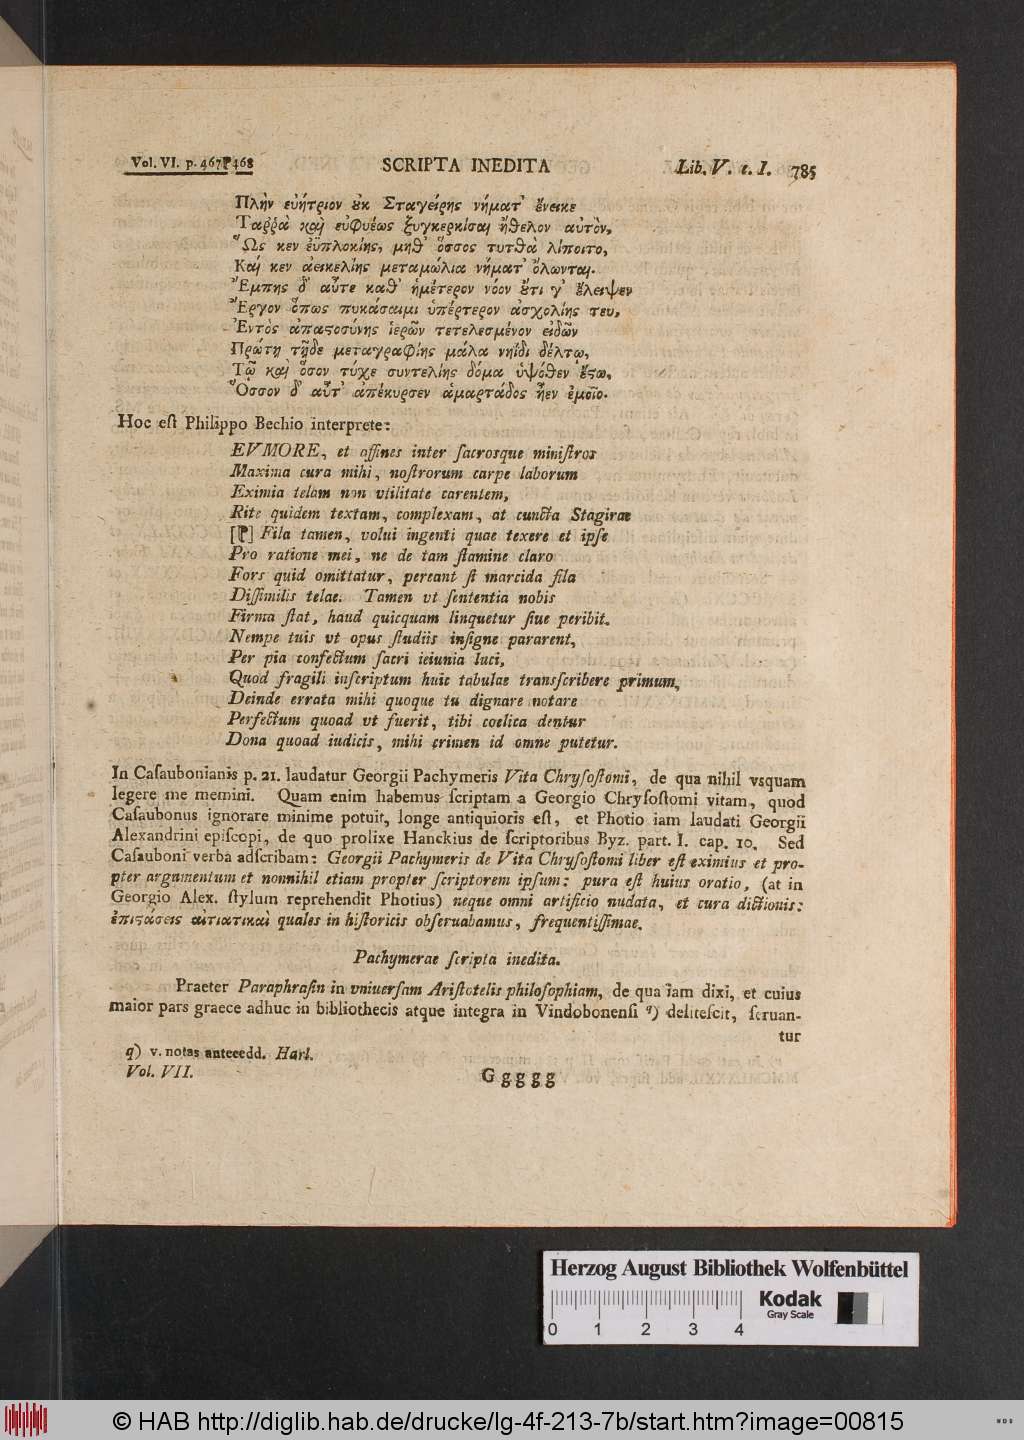 Vol. VI. p. 467 468 SCRIPTA INEDITA Lib. V. c. I. 785
Πλὴν εὐήτριον ȣκ Σταγείρης νήματ' ἔνεικε
Ταῤῥὰ καὶ εὐφυέως ξυγκερκίσαι ἤθελον αὐτὸν,
Ὥς κεν ἐϋπλοκίης, μηθ' ὅσσος τυτθὰ λίποιτο,
Καί κεν ἀεικελίης μεταμώλια νήματ' ὄλωνται.
Ἔμπης δ' αὖτε καθ' ἡμέτερον νόον ȣτι γ' ἔλειψεν
Ἔργον ὅπως πυκάσαιμι ὑπέρτερον ἀσχολίης τευ,
Ἐντὸς ἀπαστοσύνης ἱερῶν τετελεσμένον εἰδῶν
Πρώτῃ τῇδε μεταγραφίης μάλα νηίδι δέλτῳ,
Τῶ καὶ ὅσον τύχε συντελίης δόμα ὑψόθεν ἔστω,
Ὅσσον δ' αὖτ' ἀπέκυρσεν ἁμαρτάδος ἦεν ἐμοῖο.
Hoc eſt Philippo Bechio interprete:
EVMORE, et affines inter ſacrosque miniſtros
Maxima cura mihi, noſtrorum carpe laborum
Eximia telam non vtilitate carentem,
Rite quidem textam, complexam, at cuncta Stagirae
[] Fila tamen, volui ingenti quae texere et ipſe
Pro ratione mei, ne de tam ſtamine claro
Fors quid omittatur, pereant ſi marcida fila
Diſſimilis telae. Tamen vt ſententia nobis
Firma ſtat, haud quicquam linquetur ſiue peribit.
Nempe tuis vt opus ſtudiis inſigne pararent,
Per pia confectum ſacri ieiunia luci,
Quod fragili inſcriptum huic tabulae transſcribere primum,
Deinde errata mihi quoque tu dignare notare
Perfectum quoad vt fuerit, tibi coelica dentur
Dona quoad iudicis, mihi crimen id omne putetur.
In Caſaubonianis p. 21. laudatur Georgii Pachymeris Vita Chryſoſtomi, de qua nihil vsquam
legere me memini. Quam enim habemus ſcriptam a Georgio Chryſoſtomi vitam, quod
Caſaubonus ignorare minime potuit, longe antiquioris eſt, et Photio iam laudati Georgii
Alexandrini epiſcopi, de quo prolixe Hanckius de ſcriptoribus Byz. part. I. cap. 10. Sed
Caſauboni verba adſcribam: Georgii Pachymeris de Vita Chryſoſtomi liber eſt eximius et pro-
pter argumentum et nonnihil etiam propter ſcriptorem ipſum: pura eſt huius oratio, (at in
Georgio Alex. ſtylum reprehendit Photius) neque omni artificio nudata, et cura dictionis:
ἐπιστάσεις αἰτιατικαὶ quales in hiſtoricis obſeruabamus, frequentiſſimae.
Pachymerae ſcripta inedita.
Praeter Paraphraſin in vniuerſam Ariſtotelis philoſophiam, de qua iam dixi, et cuius
maior pars graece adhuc in bibliothecis atque integra in Vindobonenſi q) deliteſcit, ſeruan-
tur
q) v. notas anteced. Harl.
Vol. VII. G g g g g
Herzog August Bibliothek Wolfenbüttel
Kodak
Gray Scale
0 1 2 3 4
© HAB http://diglib.hab.de/drucke/lg-4f-213-7b/start.htm?image=00815